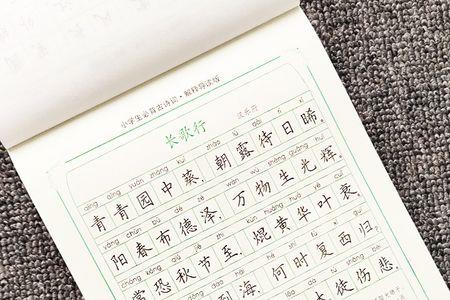 小学生必背古诗词·解释导读版
长歌行
汉乐府
qīng qīng yuán zhōng kuí zhāo lù dài rì xī
青青园中葵,朝露待日晞。
yáng chūn bù dé zé wàn wù shēng guāng huī
阳春布德泽,万物生光辉。
cháng kǒng qiū jié zhì kūn huáng huā yè shuāi
常恐秋节至,焜黄华叶衰。
hǎi hé shí fù xī guī
海,何时复西归?
徒伤悲。